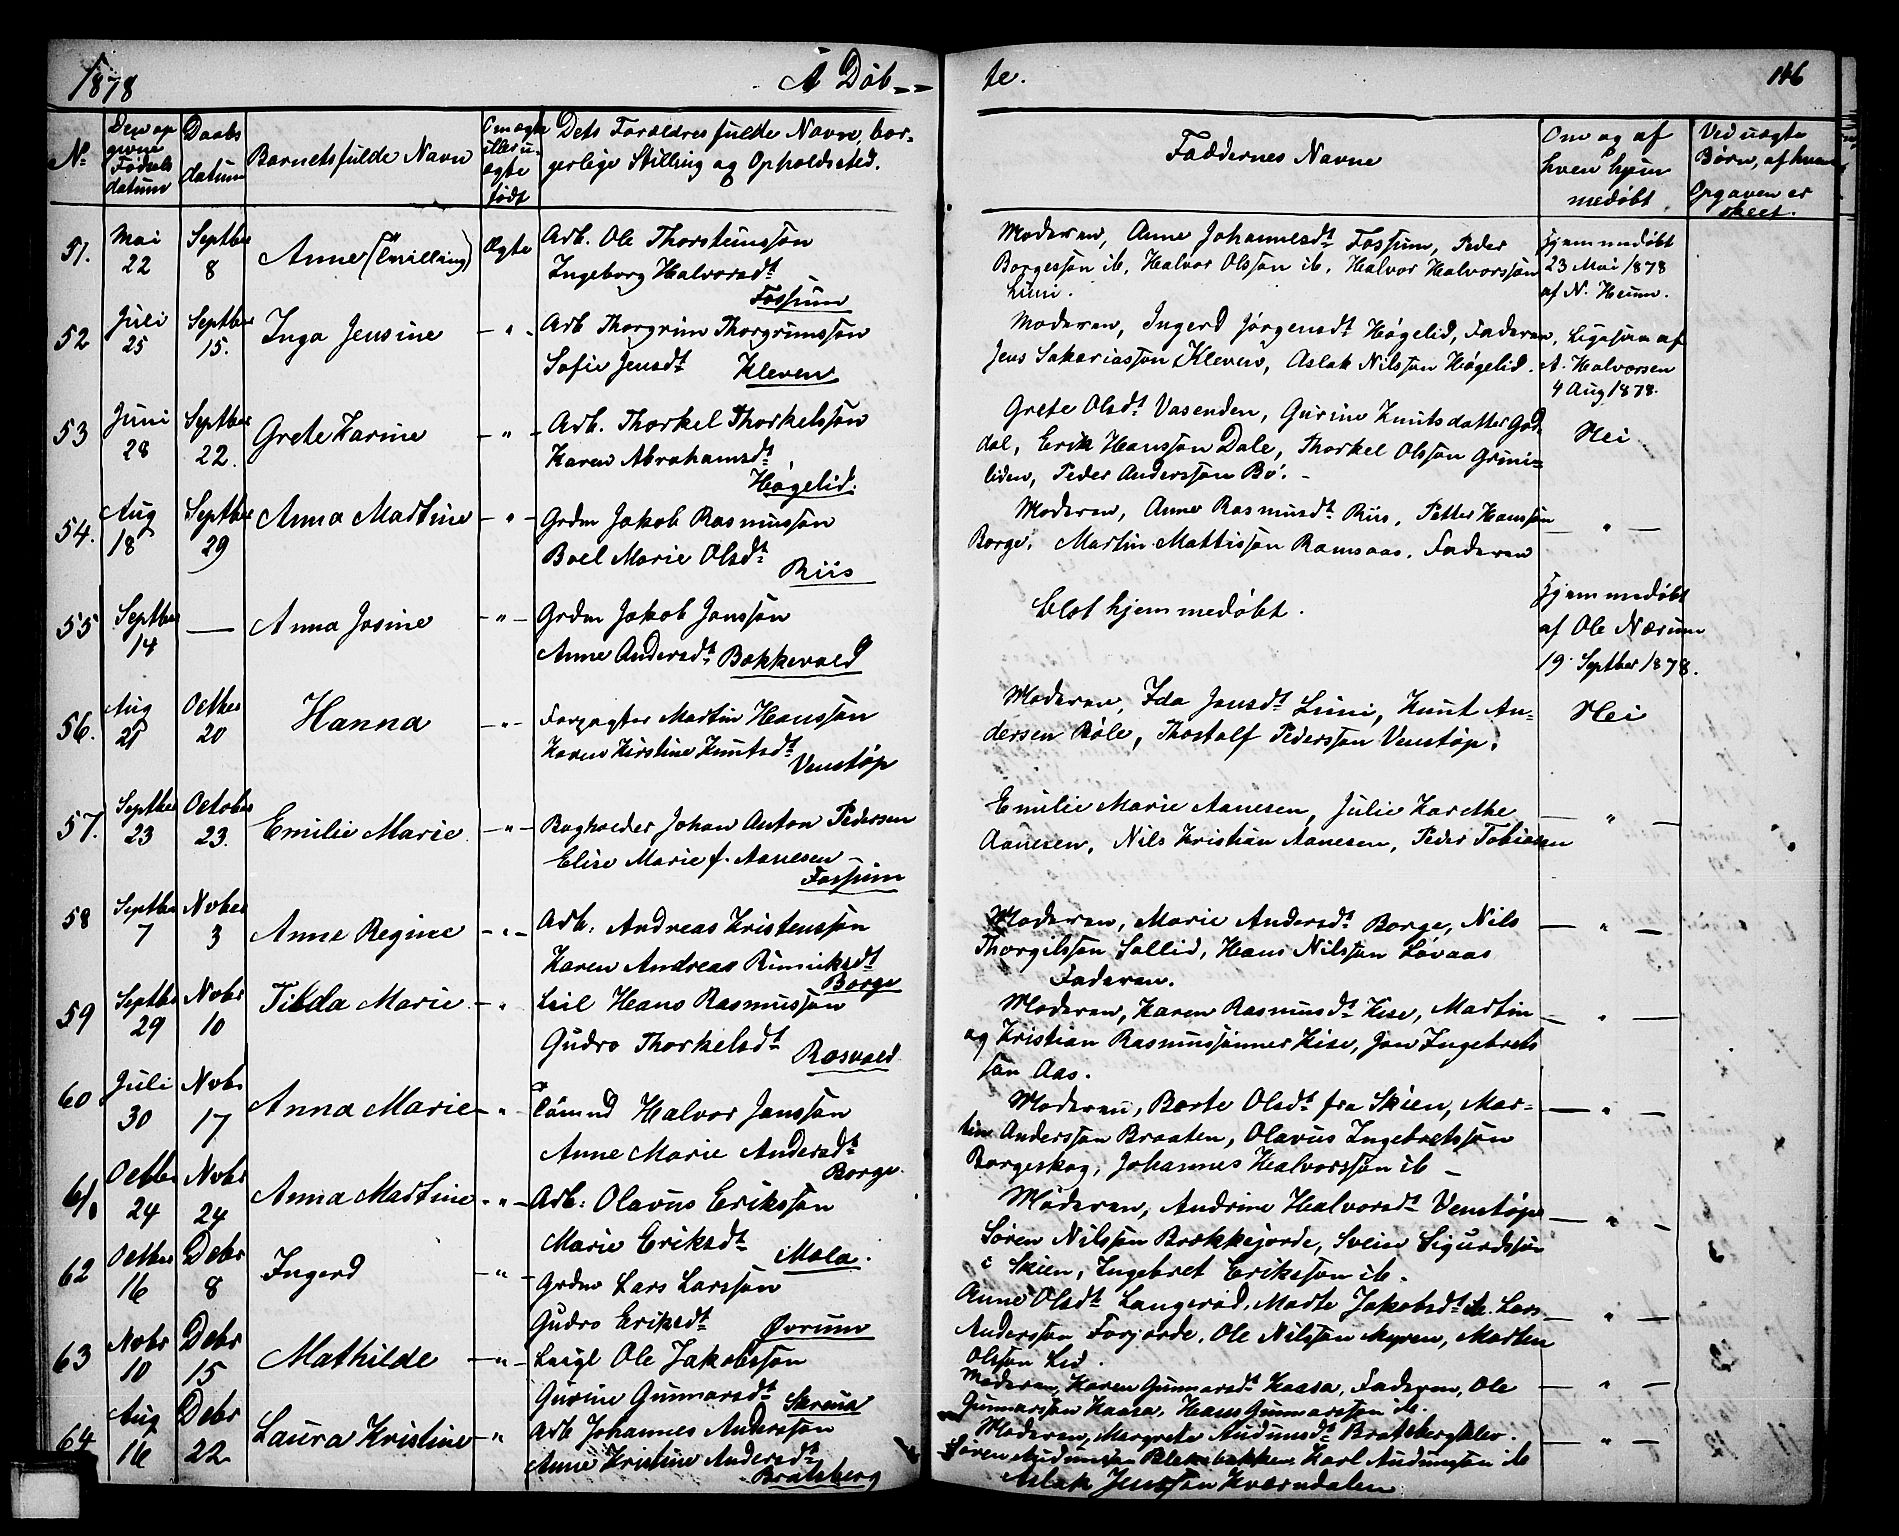 1878
A Døb--
te.
146
No
Den op
givne
Fødsels
datum
Daabs
datum
Barnets fulde Navn
Om ægte
eller u-
ægte
født
Dets Forældres fulde Navn, bor-
gerlige Stilling og Opholdssted.
Faddernes Navne
Om og af
hvem hjem
medøbt
Ved uægte
Børn, af hvem
Opgaven er
skeet.
51.
Mai
22
Septber
8
Anne (Tvilling)
Ægte
Arb. Ole Thorsteinssøn
Ingeborg Halvorsdt
Fossum
Moderen, Anne Johannesdt Fossum, Peder
Borgessøn ib, Halvor Olssøn ib, Halvor Halvorssøn
Limi.
Hjemmedøbt
23 Mai 1878
af N. Heum.
52
Juli
25
Septber
15.
Inga Jensine
- " -
Arb Thorgrim Thorgrimssøn
Sofie Jensdt
Kleven
Moderen, Ingerd Jørgensdt Høgelid, Faderen,
Jens Sakariassøn Kleven, Aslak Nilssøn Høgelid.
Ligesom af
A. Halvorsen
4 Aug 1878.
53
Juni
28
Septber
22.
Grete Karine
- " -
Arb. Thorkel Thorkelssøn
Karen Abrahamsdt
Høgelid.
Grete Olsdt Vasenden, Gurine Knutsdatter God-
dal, Erik Hanssøn Dale, Thorkel Olssøn Grini=
liden, Peder Anderssøn Bø. -
Nei
54.
Aug
18
Septber
29
Anna Martine
- " -
Grdm Jakob Rasmussøn
Boel Marie Olsdt
Riis
Moderen, Anne Rasmusdt Riis, Petter Hanssøn
Borge, Martin Mattissøn Ramsaas, Faderen
— " —
55
Septber
14
—
Anna Josine
- " -
Grdm Jakob Janssøn
Anne Andersdt Bakkevold
blot hjemmedøbt.
Hjemmedøbt
af Ole Nærum
19 Septber 1878.
56.
Aug
21
Octber
20
Hanna
- " -
Forpagter Martin Hanssøn
Karen Kirstine Knutsdt
Venstøp
Moderen, Ida Jensdt Limi, Knut An=
dersen Bøle, Thostolf Pederssøn Venstøp.
Nei
57.
Septber
23
October
23.
Emilie Marie
- " -
Bogholder Johan Anton Pedersen
Elise Marie f. Aanesen -
Fossum
Emilie Marie Aanesen, Julie Karethe
Aanesen, Nils Kristian Aanesen, Peder Tobiassen
— " —
58
Septber
7
Nvber
3
Anne Regine
- " -
Arb. Andreas Kristenssøn
Karen Andreas
Borge
Moderen, Marie Andersdt Borge, Nils
Thorgilssøn Sollid, Hans Nilssøn Løvaas
Faderen.
— " —
59
Septbr
29
Nvbr
10
Tilda Marie
- "
Leil Hans Rasmussøn
Gudro Thorkelsdt
Rasvald
Moderen, Karen Rasmusdt Kise, Martin
og Kristian Rasmussønner Kise, Jon Ingebrets
søn Aas.
— " —
60
Juli
30
Nvbr
17
Anna Marie
- "
Tømmd Halvor Janssøn
Anne Marie Andersdt
Borge.
Moderen, Berte Olsdt fra Skien, Mar-
tin Anderssøn Braaten, Olavus Ingebretssøn
Borgeskog, Johannes Halvorssøn ib -
— " —
61
Octber
24
Nvbr
24
Anna Martine
- " -
Arb: Olavus Erikssøn
Marie Eriksdt
Mæla.
Moderen, Andrine Halvorsdt Venstøp
Søren Nilssøn Brækkejorde, Svein Sigurdssøn
i Skien, Ingebret Erikssøn ib.
— " —
62
Octber
16
Debr
8
Ingerd
- " -
Grdm Lars Larssøn
Gudro Eriksdt
Ørum
Anne Olsdt Langerød, Marte Jakobsdt ib. Lars
Anderssøn Forjorde, Ole Nilssøn Myren, Morten
Olssøn Lid.
— " —
63
Nvbr
10
Debr
15
Mathilde
- " -
Leigl Ole Jakobssøn
Gurine Gunnarsdt
Skrena
Moderen, Karen Gunnarsdt Kaasa, Faderen, Ole
Gunnarssøn Kaasa, Hans Gunnarssøn ib.
— " —
64
Aug
16
Debr
22
Laura Kristine
- "
Arb Johannes Anderssøn
Anne Kristine Andersdt
Bratsberg
Moderen, Margrete Audunsdt Bratsbergklev.
Søren Audunssøn Blekebakken Karl Audunssøn ib
Aslak Jenssøn Kværndalen
— " —